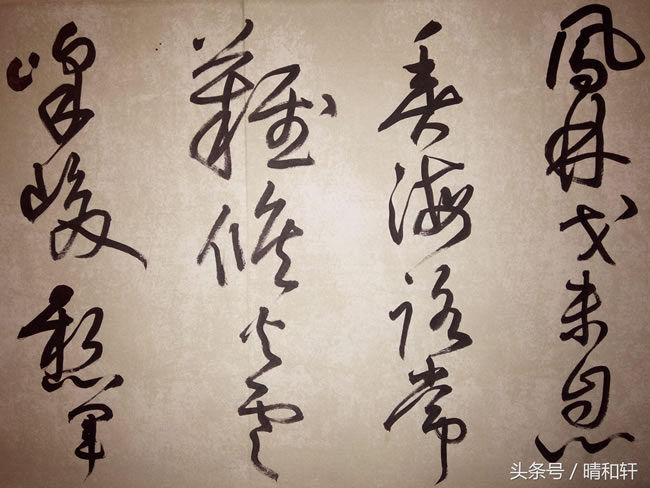 鳳林戈未息
魚海路常
難候火雲
峰峻懸軍
头条号 / 晴和轩